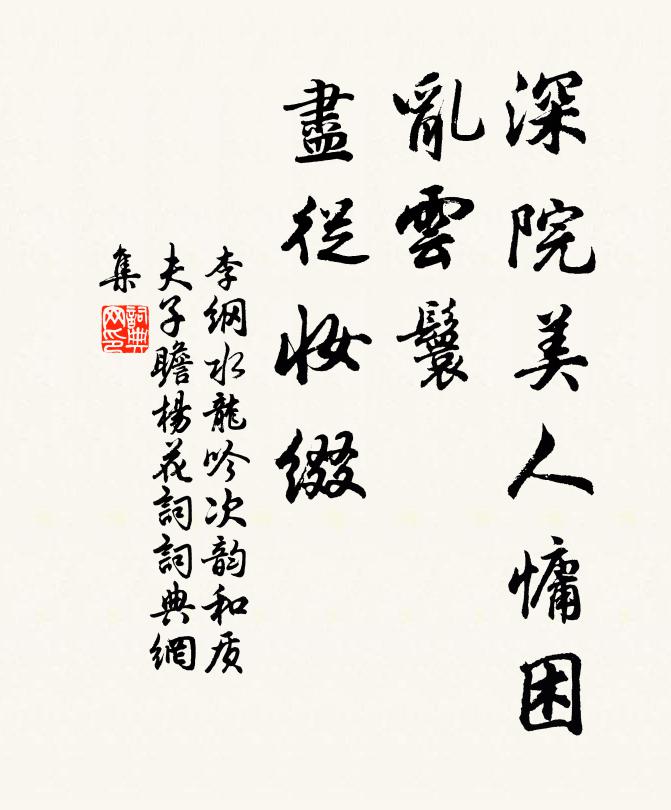 深院美人慵困
亂雲鬟
盡從妝綴
李綱水龍吟次韵和质
夫子瞻楊花詞詞典網
集
詞典
网印